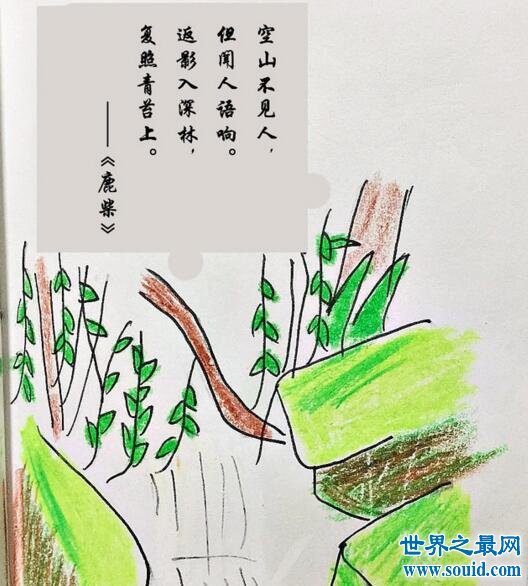 空山不见人，
但闻人语响。
返影入深林，
复照青苔上。
——《鹿柴》
世界之最网
www.souid.com